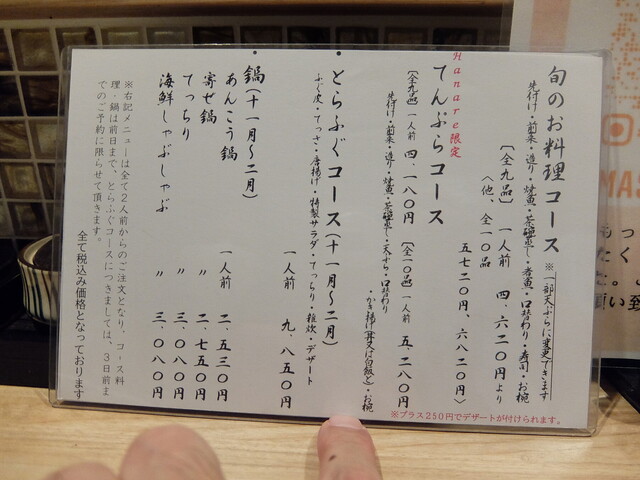 旬のお料理コース ※一部天ぷらに変更できます
先付け・前菜・造り・焼魚・茶碗蒸し・煮魚・口替わり・寿司・お椀
〔全九品〕一人前 四、六二〇円より
〈他、全一〇品 五七二〇円、六八二〇円〉
Hanare限定
てんぷらコース
〔全九品〕一人前 四、一八〇円 〔全一〇品〕一人前 五、二八〇円
先付け・前菜・造り・焼魚・茶碗蒸し・天ぷら・口替わり
かき揚げ(丼又は白飯と)・お椀
・とらふぐコース(十一月～二月)
ふぐ皮・てっさ・唐揚げ・特製サラダ・てっちり・雑炊・デザート
一人前 九、八五〇円
・鍋(十一月～二月)
あんこう鍋 一人前 二、五三〇円
寄せ鍋 〃 二、七五〇円
てっちり 〃 三、〇八〇円
海鮮しゃぶしゃぶ 〃 三、〇八〇円
※右記メニューは全て2人前からのご注文となり、コース料
理・鍋は前日まで、とらふぐコースにつきましては、3日前ま
でのご予約に限らせて頂きます。
全て税込み価格となっております
※プラス250円でデザートが付けられます。